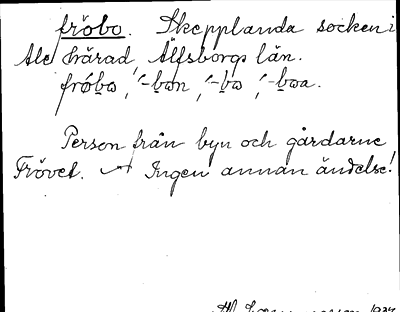 fröbo. Skepplanda socken i
Ale härad, Älfsborgs län.
frö́bo, -bon, -bo, -boa.
Person från byn och gårdarne
Frövet. — Ingen annan ändelse!